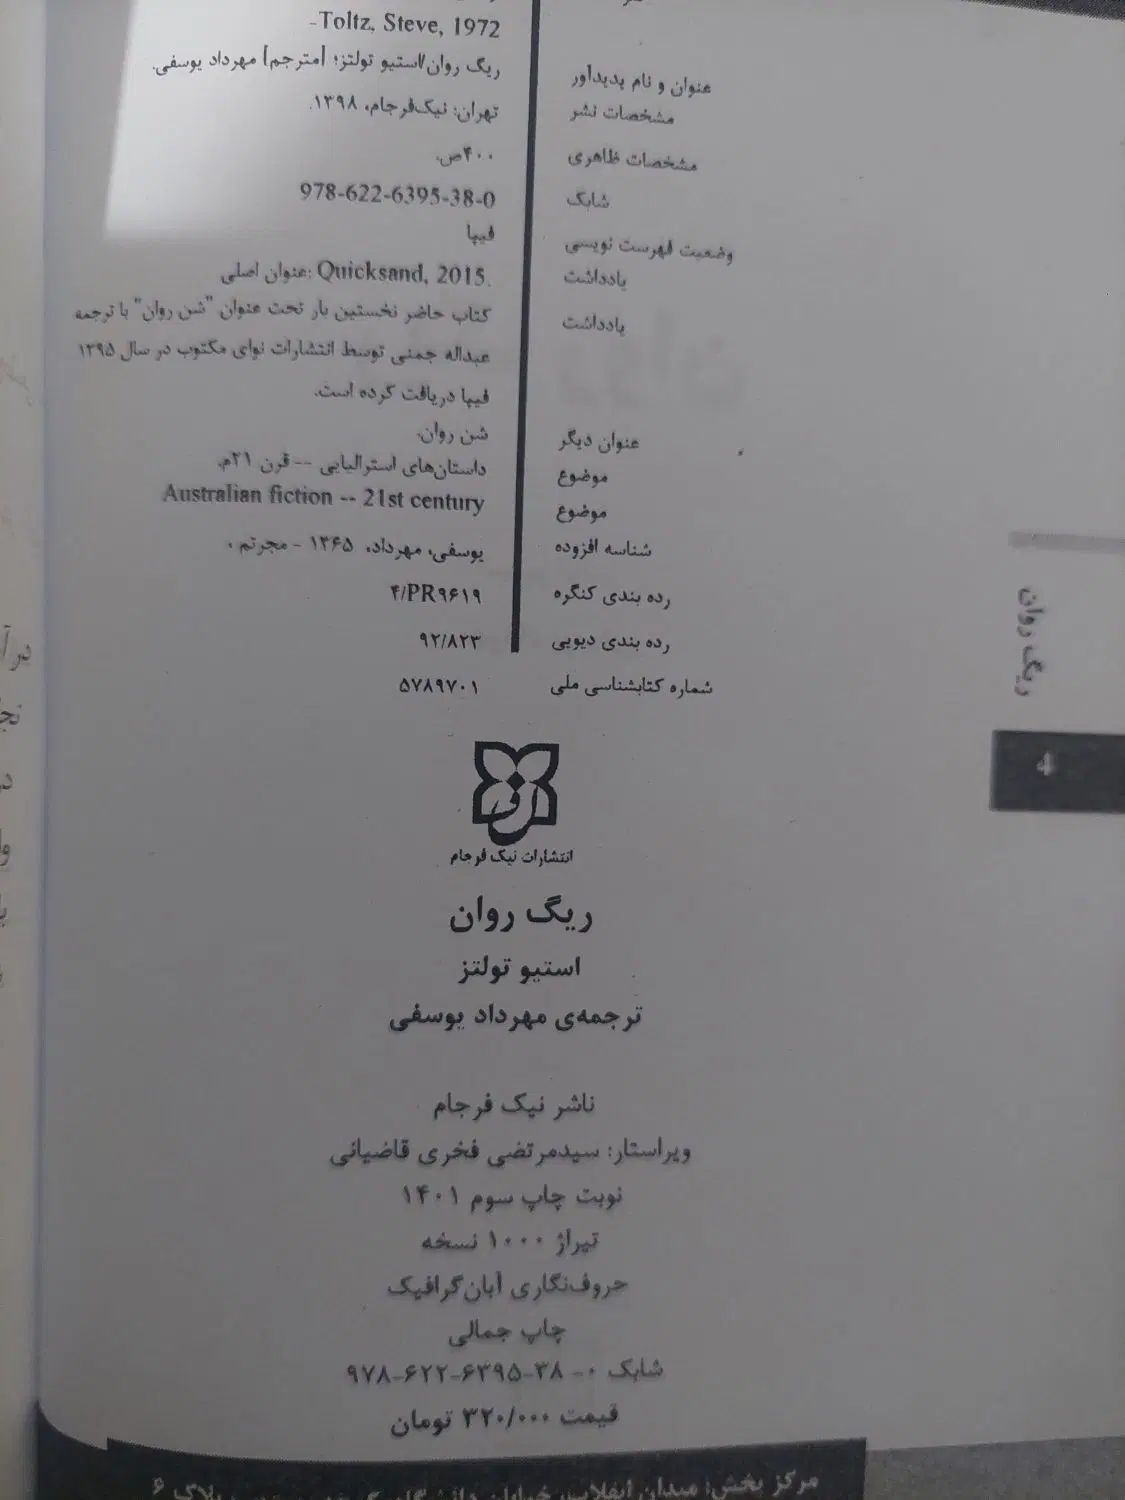 Toltz, Steve, 1972-
عنوان و نام پدیدآور ریگ روان/استیو تولتز؛ [مترجم] مهرداد یوسفی.
مشخصات نشر تهران: نیک‌فرجام، ۱۳۹۸.
مشخصات ظاهری ۴۰۰ص.
شابک 978-622-6395-38-0
وضعیت فهرست نویسی فیپا
یادداشت عنوان اصلی: Quicksand, 2015.
یادداشت کتاب حاضر نخستین بار تحت عنوان "شن روان" با ترجمه
عبداله جمنی توسط انتشارات نوای مکتوب در سال ۱۳۹۵
فیپا دریافت کرده است.
عنوان دیگر شن روان.
موضوع داستان‌های استرالیایی -- قرن ۲۱م.
موضوع Australian fiction -- 21st century
شناسه افزوده یوسفی، مهرداد، ۱۳۶۵ - مجرتم ،
رده بندی کنگره ۴/PR۹۶۱۹
رده بندی دیویی ۹۲/۸۲۳
شماره کتابشناسی ملی ۵۷۸۹۷۰۱
ریگ روان
4
انتشارات نیک فرجام
ریگ روان
استیو تولتز
ترجمه‌ی مهرداد یوسفی
ناشر نیک فرجام
ویراستار: سیدمرتضی فخری قاضیانی
نوبت چاپ سوم ۱۴۰۱
تیراژ ۱۰۰۰ نسخه
حروف‌نگاری آبان‌گرافیک
چاپ جمالی
شابک ۰- ۳۸-۶۳۹۵-۶۲۲-۹۷۸
قیمت ۳۲۰/۰۰۰ تومان
مرکز پخش: میدان انقلاب، خیابان دانشگاه، پلاک ۶